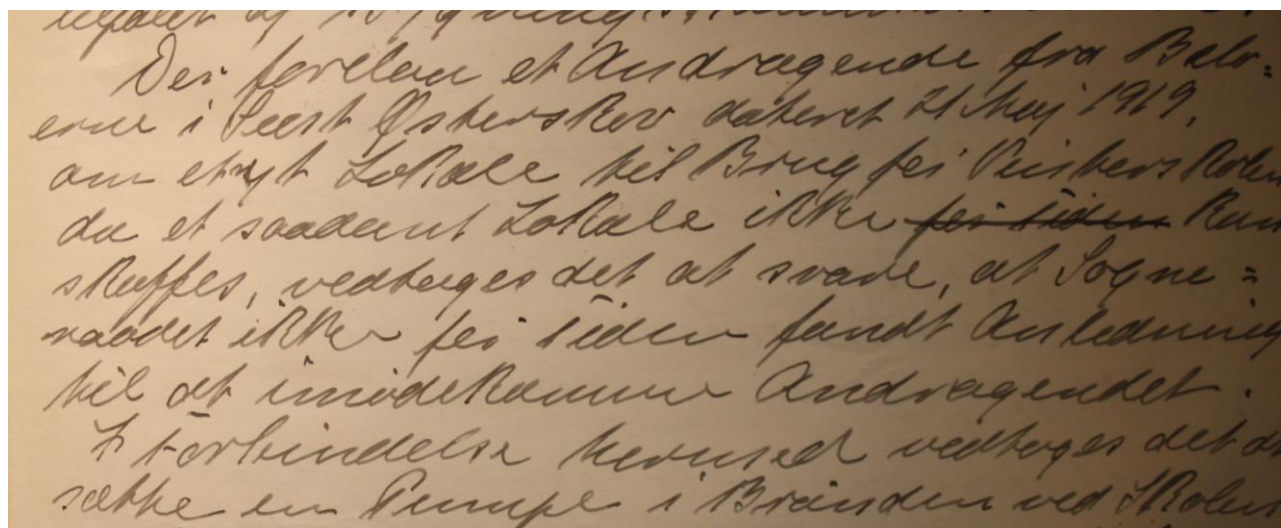 Der forelaa et Andragende fra Bebo=
erne i Seest Østerskov dateret 21 Maj 1919,
om et nyt Lokale til Brug for Vinterskolen
da et saadant Lokale ikke for tiden kan
skaffes, vedtoges det at svare, at Sogne=
raadet ikke for tiden fandt Anledning
til at imødekomme Andragendet.
I Forbindelse hermed vedtoges det at
sætte en Pumpe i Brønden ved Skolen